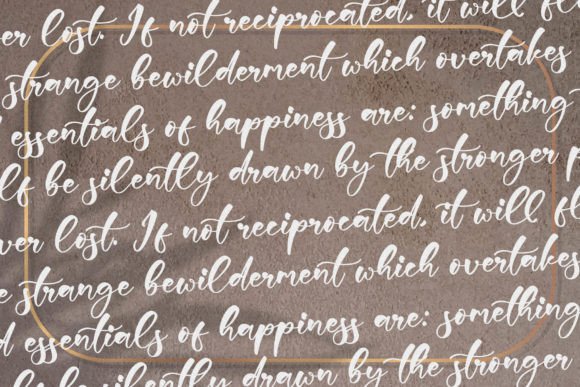 er lost. If not reciprocated, it will fl
strange bewilderment which overtakes
essentials of happiness are: something
lf be silently drawn by the stronger p
ver lost. If not reciprocated, it will fl
e strange bewilderment which overtakes
d essentials of happiness are: something
lf be silently drawn by the stronger